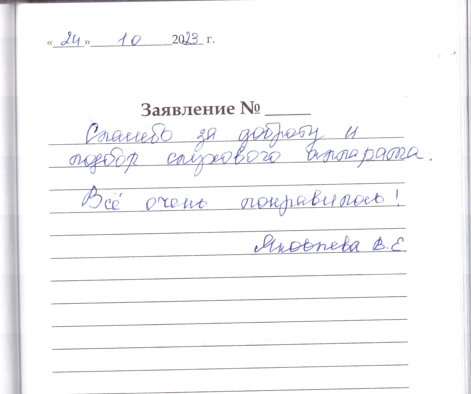 « 24 » 10 2023 г.
Заявление № ____
Спасибо за доброту и
подбор слухового аппарата.
Всё очень понравилось!
Яковлева В.Е